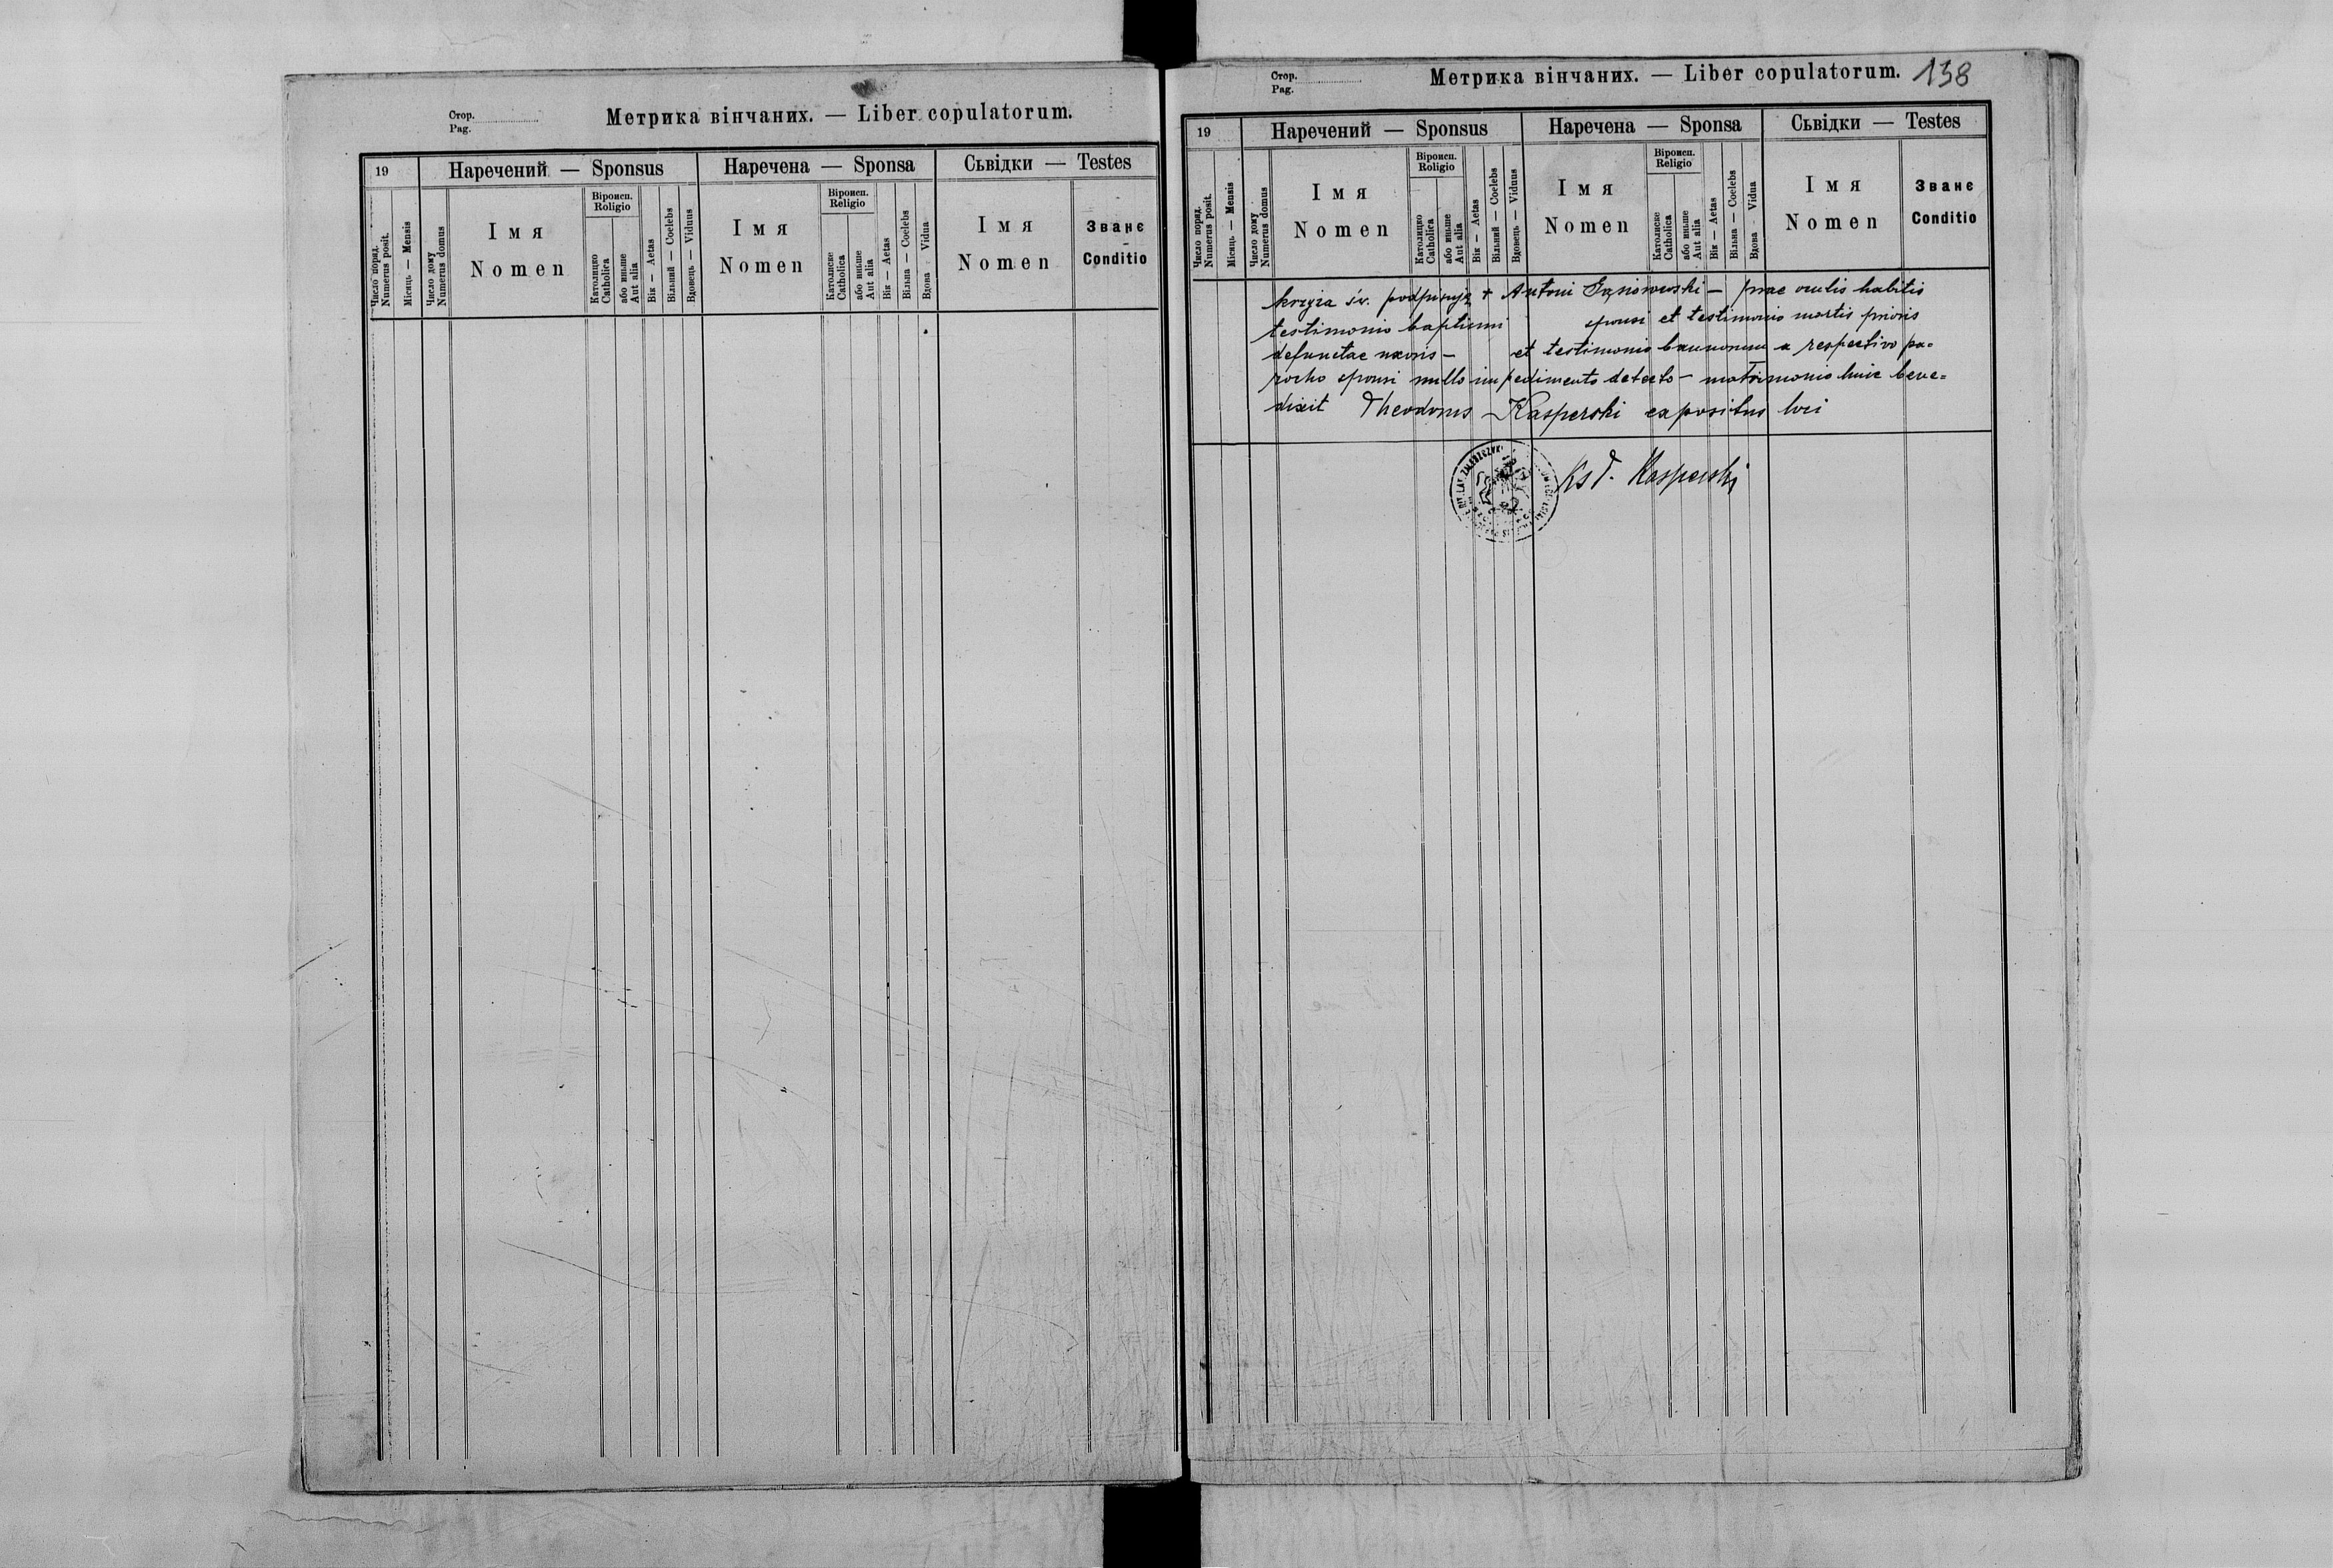 Стор.
Pag.
Метрика вінчаних. — Liber copulatorum.
19
Наречений — Sponsus
Наречена — Sponsa
Сьвідки — Testes
Число поряд.
Numerus posit.
Місяць — Mensis
Число дому
Numerus domus
Імя
Nomen
Віроисп.
Religio
Католицко
Catholica
або иньше
Aut alia
Вік — Aetas
Вільний — Coelebs
Вдовець — Viduus
Імя
Nomen
Віроисп.
Religio
Католиске
Catholica
або иньше
Aut alia
Вік — Aetas
Вільна — Coelebs
Вдова — Vidua
Імя
Nomen
Званє
Conditio
Стор.
Pag.
Метрика вінчаних. — Liber copulatorum. 138
19
Наречений — Sponsus
Наречена — Sponsa
Сьвідки — Testes
Число поряд.
Numerus posit.
Місяць — Mensis
Число дому
Numerus domus
Імя
Nomen
Віроисп.
Religio
Католицко
Catholica
або иньше
Aut alia
Вік — Aetas
Вільний — Coelebs
Вдовець — Viduus
Імя
Nomen
Віроисп.
Religio
Католиске
Catholica
або иньше
Aut alia
Вік — Aetas
Вільна — Coelebs
Вдова Vidua
Імя
Nomen
Званє
Conditio
krzyża św. podpisuję + Antoni — prae oculis habitis
testimonio baptismi sponsi et testimonio mortis prioris
defunctae uxoris — et testimonio bannorum a respectivo pa=
rocho sponsi nullo impedimento detecto — matrimonio huic bene=
dixit Theodorus Kasperski expositus loci
Ks T. Kasperski